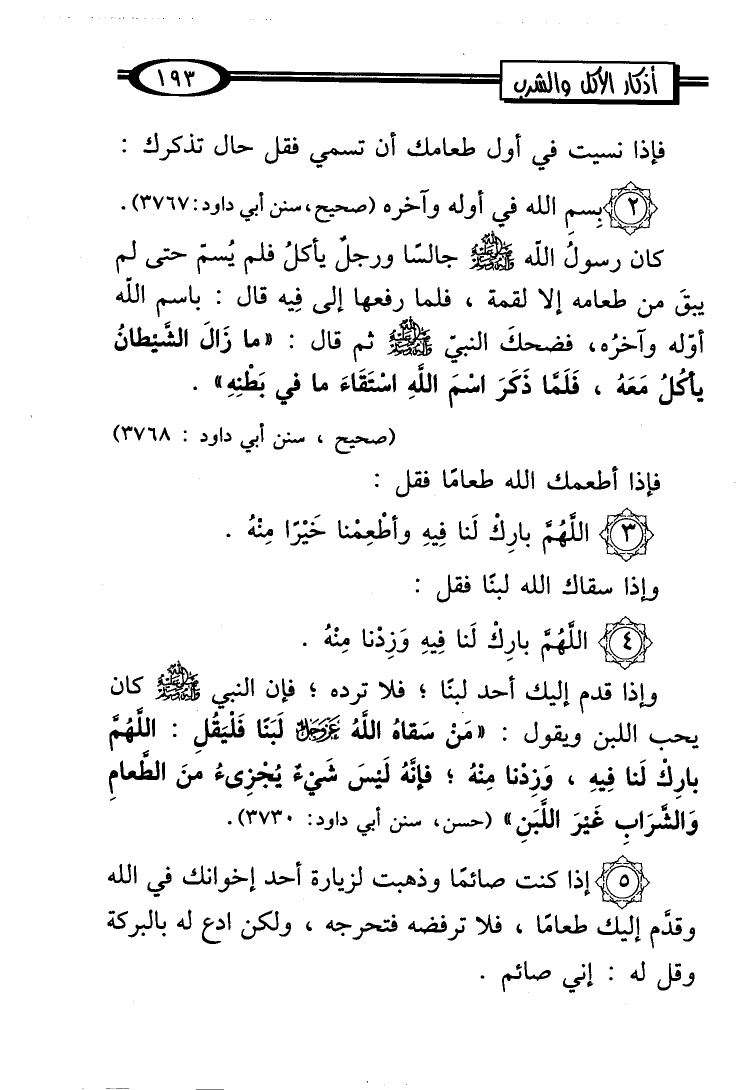 أذكار الأكل والشرب ١٩٣
فإذا نسيت في أول طعامك أن تسمي فقل حال تذكرك :
٢ بِسمِ الله في أوله وآخره (صحيح، سنن أبي داود: ٣٧٦٧).
كان رسولُ اللّه ﷺ جالسًا ورجلٌ يأكلُ فلم يُسمّ حتى لم
يبقَ من طعامه إلا لقمة ، فلما رفعها إلى فِيه قال : باسم اللّه
أوّله وآخرُه، فضحكَ النبيّ ﷺ ثم قال : «ما زَالَ الشَّيْطانُ
يأكُلُ مَعَهُ ، فَلَمَّا ذَكَرَ اسْمَ اللَّهِ اسْتَقَاءَ ما في بَطْنِهِ» .
(صحيح ، سنن أبي داود : ٣٧٦٨)
فإذا أطعمك الله طعامًا فقل :
٣ اللَّهُمَّ بارِكْ لَنا فِيهِ وأطْعِمْنا خَيْرًا مِنْهُ .
وإذا سقاك الله لبنًا فقل :
٤ اللَّهُمَّ بارِكْ لَنا فِيهِ وَزِدْنا مِنْهُ .
وإذا قدم إليك أحد لبنًا ؛ فلا ترده ؛ فإن النبي ﷺ كان
يحب اللبن ويقول : «مَنْ سَقاهُ اللَّهُ عَزَّوَجَلَّ لَبَنًا فَلْيَقُلِ : اللَّهُمَّ
بارِكْ لَنا فِيهِ ، وَزِدْنا مِنْهُ ؛ فإنَّهُ لَيْسَ شَيْءٌ يُجْزِىءُ منَ الطَّعامِ
وَالشَّرَابِ غَيْرَ اللَّبَنِ» (حسن، سنن أبي داود: ٣٧٣٠).
٥ إذا كنت صائمًا وذهبت لزيارة أحد إخوانك في الله
وقدَّم إليك طعامًا ، فلا ترفضه فتحرجه ، ولكن ادع له بالبركة
وقل له : إني صائم .